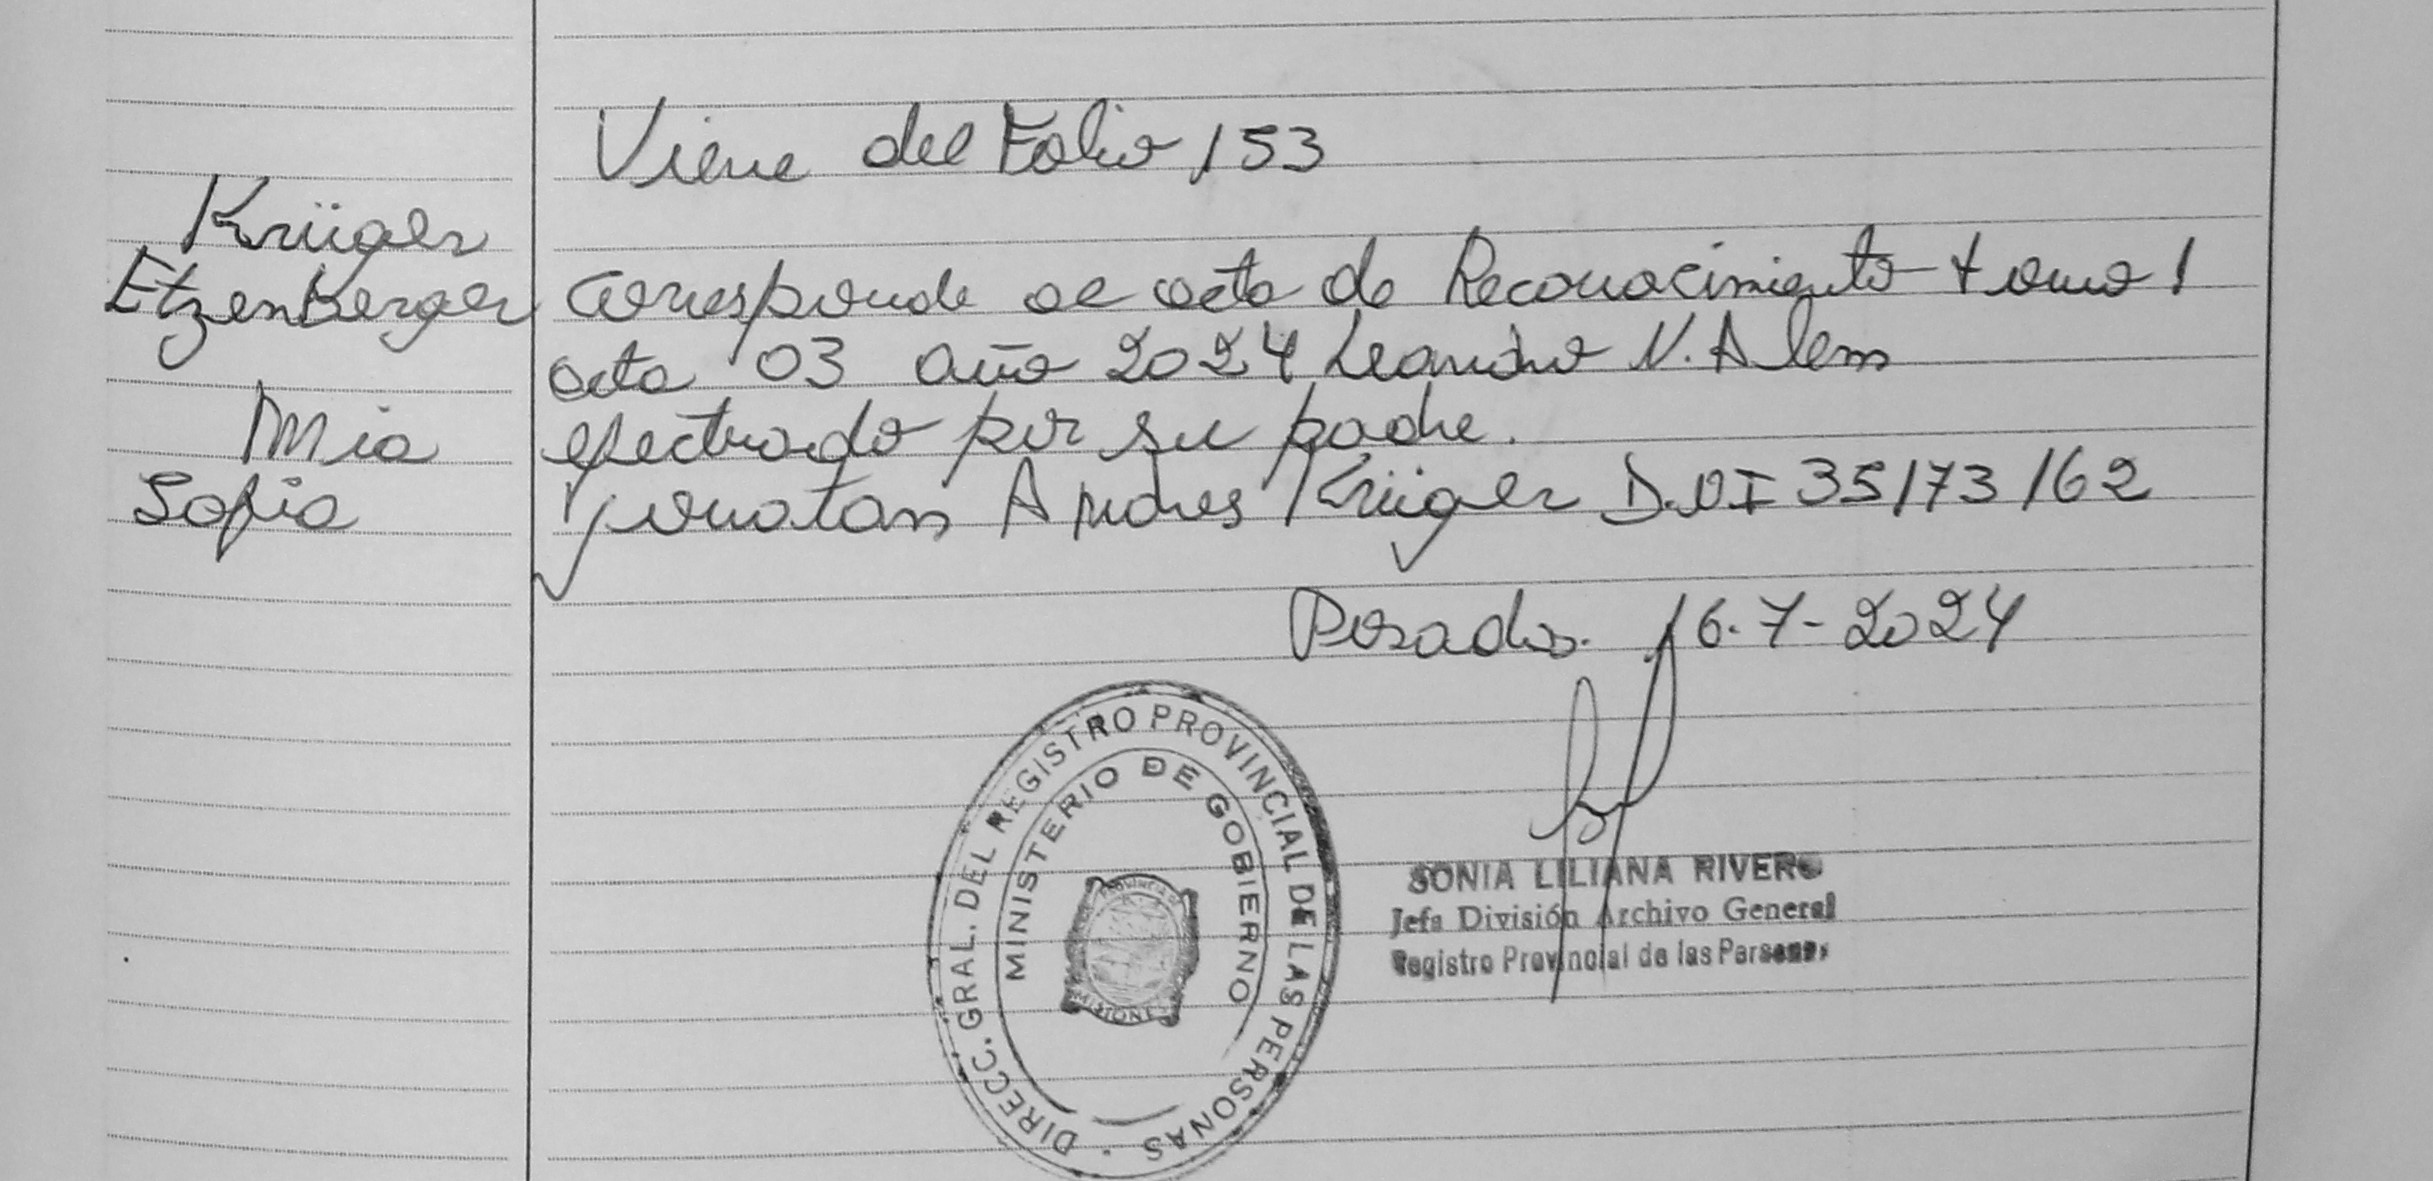 Viene del Folio 153
Krüger
Etzenberger
Mia
Sofia
Corresponde al acta de Reconocimiento tomo 1
acta 03 año 2024 Leandro N. Alem
efectuado por su padre.
Jonatan Andres Krüger D.N.I 35173162
Posadas. 16-7-2024
DIRECC. GRAL. DEL REGISTRO PROVINCIAL DE LAS PERSONAS
MINISTERIO DE GOBIERNO
PROVINCIA
MISIONES
SONIA LILIANA RIVERO
Jefa División Archivo General
Registro Provincial de las Personas